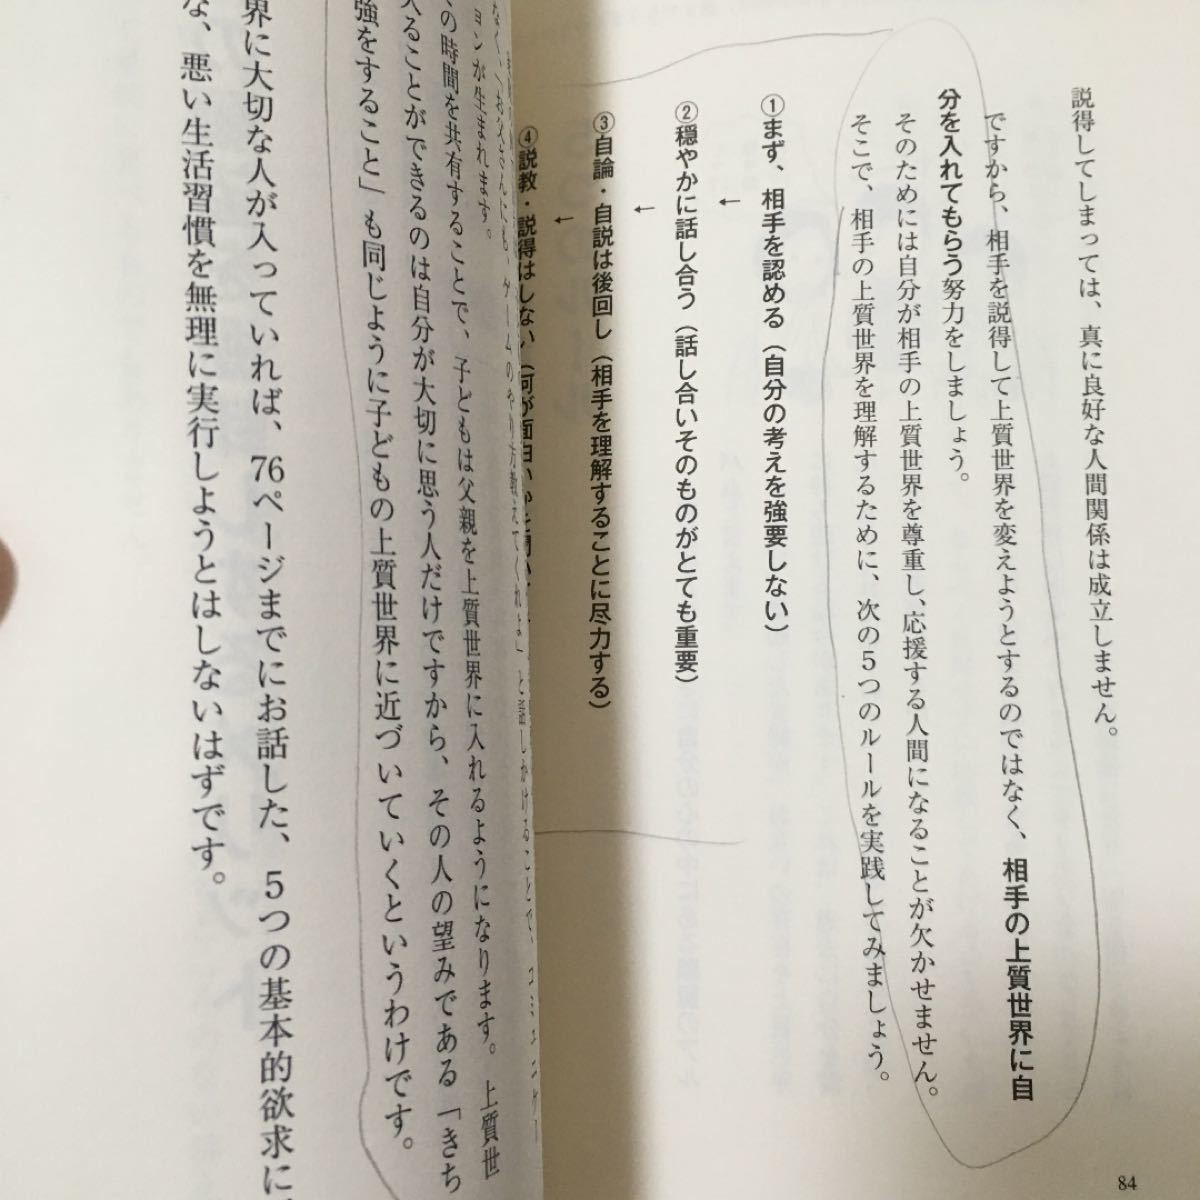 説得してしまっては、真に良好な人間関係は成立しません。
ですから、相手を説得して上質世界を変えようとするのではなく、相手の上質世界に自
分を入れてもらう努力をしましょう。
そのためには自分が相手の上質世界を尊重し、応援する人間になることが欠かせません。
そこで、相手の上質世界を理解するために、次の5つのルールを実践してみましょう。
①まず、相手を認める（自分の考えを強要しない）
←
②穏やかに話し合う（話し合いそのものがとても重要）
←
③自論・自説は後回し（相手を理解することに尽力する）
←
④説教・説得はしない（何が面白いかを聞い
84
なく、「お父さんにも、ゲームのやり方教えてくれよ」と話しかけることで、コミュニケー
ョンが生まれます。
の時間を共有することで、子どもは父親を上質世界に入れるようになります。上質世
入ることができるのは自分が大切に思う人だけですから、その人の望みである「きち
強をすること」も同じように子どもの上質世界に近づいていくというわけです。
界に大切な人が入っていれば、76ページまでにお話した、5つの基本的欲求に
な、悪い生活習慣を無理に実行しようとはしないはずです。